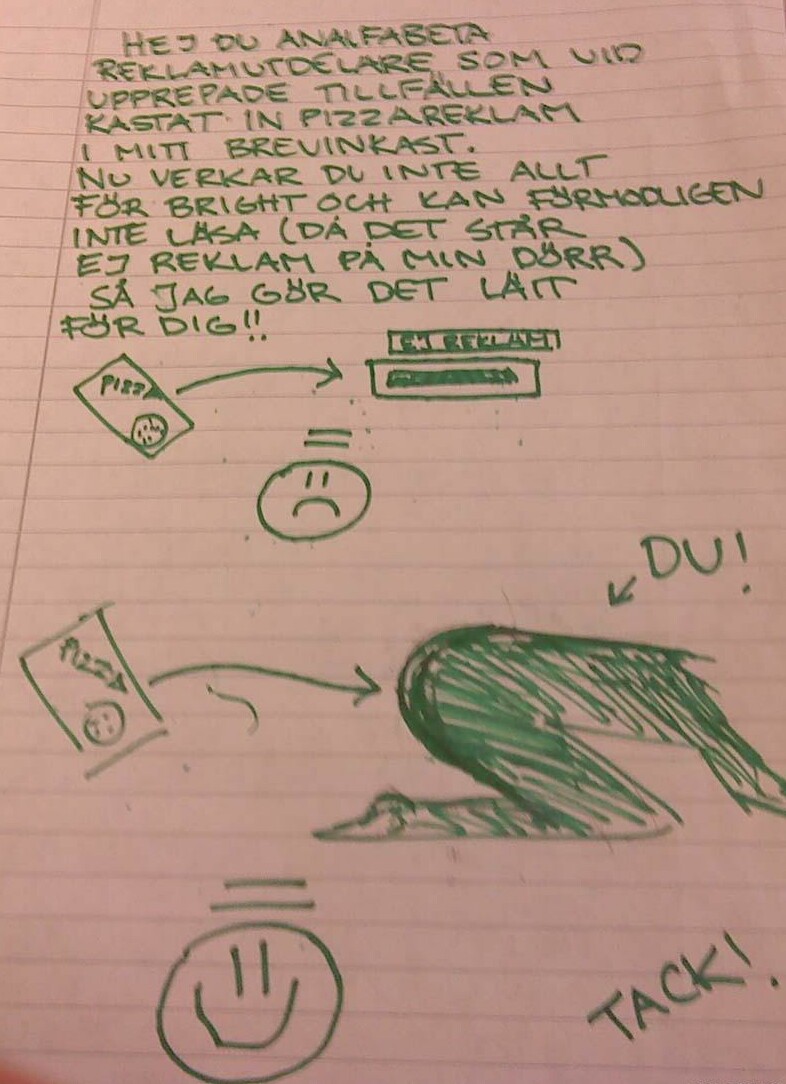 HEJ DU ANALFABETA
REKLAMUTDELARE SOM VID
UPPREPADE TILLFÄLLEN
KASTAT IN PIZZAREKLAM
I MITT BREVINKAST.
NU VERKAR DU INTE ALLT
FÖR BRIGHT OCH KAN FÖRMODLIGEN
INTE LÄSA (DÅ DET STÅR
EJ REKLAM PÅ MIN DÖRR)
SÅ JAG GÖR DET LÄTT
FÖR DIG!!
EJ REKLAM
PIZZA
=
DU!
PIZZA
=
TACK!